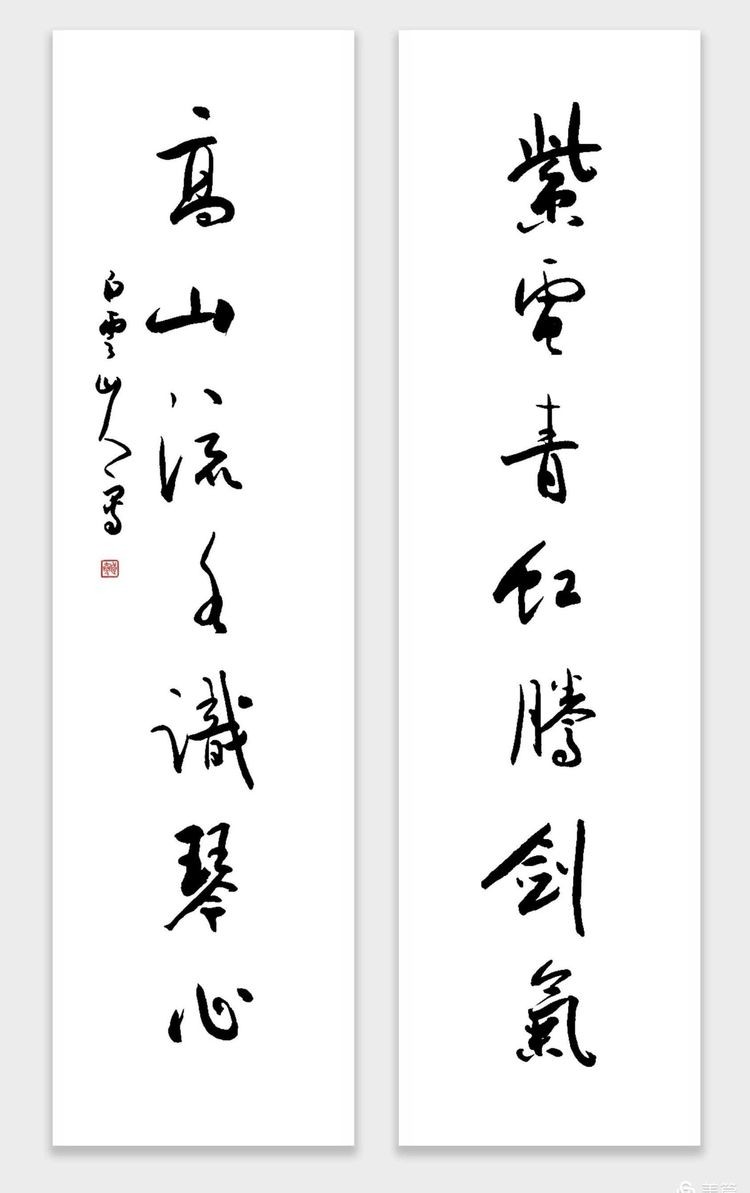 紫電青虹騰劍氣
高山流水識琴心
白雲山人寫